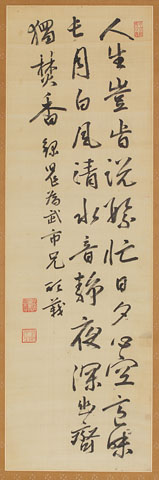 人生豈肯說繁忙日夕心空意味
長月白風清水音靜夜深幽齋
獨焚香 為武市兄